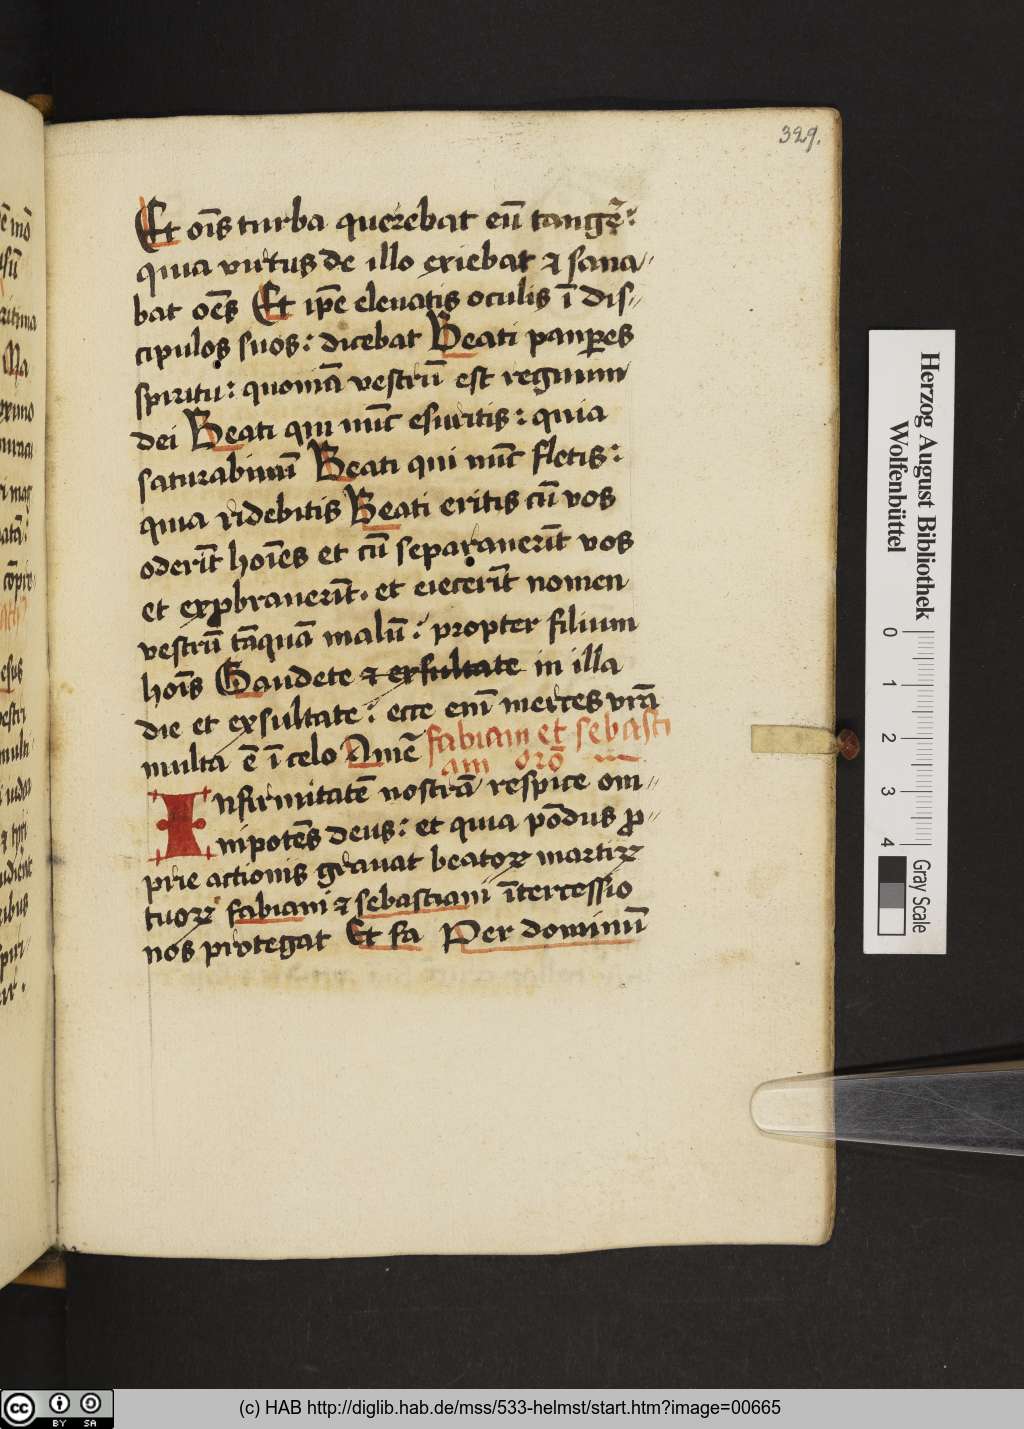 329.
Et oīs turba querebat eū tangē:
quia virtus de illo exiebat ⁊ sana-
bat oēs Et ip̄e eleuatis oculis ī dis-
cipulos suos: dicebat Beati paup̄es
spiritu: quoniā vestrū est regnum
dei Beati qui nūc esuritis: quia
saturabimī Beati qui nūc fletis:
quia ridebitis Beati eritis cū vos
oderīt hoīes et cū separauerīt vos
et exp̄brauerīt. et eiecerīt nomen
vestrū tāquā malū: propter filium
hoīs Gaudete ⁊ exsultate in illa
die et exsultate: ecce enī merces vrā
multa ē ī celo Amē fabiam et sebasti
am orō
Infirmitatē nostrā respice om-
nipotēs deus: et quia pōdus p̄-
prie actionis grauat beatoꝝ martiꝝ
tuoꝝ fabiani ⁊ sebastiani ītercessio
nos protegat Et fa Per dominū
Herzog August Bibliothek
Wolfenbüttel
0 1 2 3 4
Gray Scale
BY SA
(c) HAB http://diglib.hab.de/mss/533-helmst/start.htm?image=00665